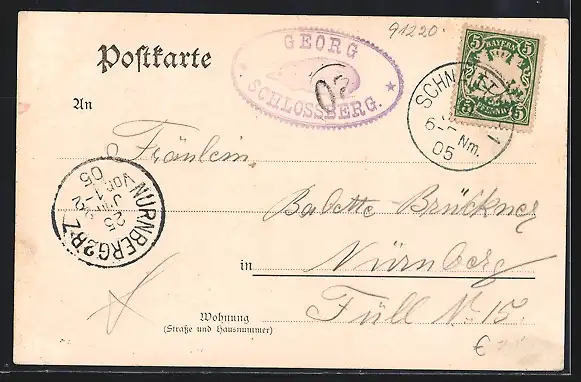 91220
Postkarte
GEORG
SCHLOSSBERG.
5 BAYERN 5
5 PFENNIG 5
SCHN
1
Nm.
05
An
Fräulein
Babette Brückner
in Nürnberg
Füll No. 15.
Wohnung
(Straße und Hausnummer)
NÜRNBERG 2 BZ
25
VOR 1-2
05
€